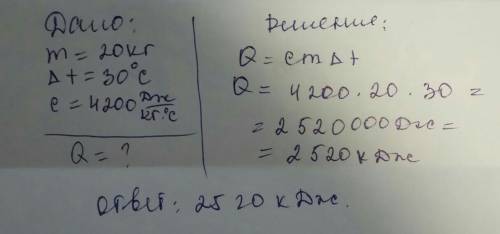 Дано:
m = 20кг
Δt = 30°C
c = 4200 Дж/кг·°C
Q = ?
Решение:
Q = cmΔt
Q = 4200·20·30 =
= 2520000Дж =
= 2520кДж
Ответ: 2520 кДж.